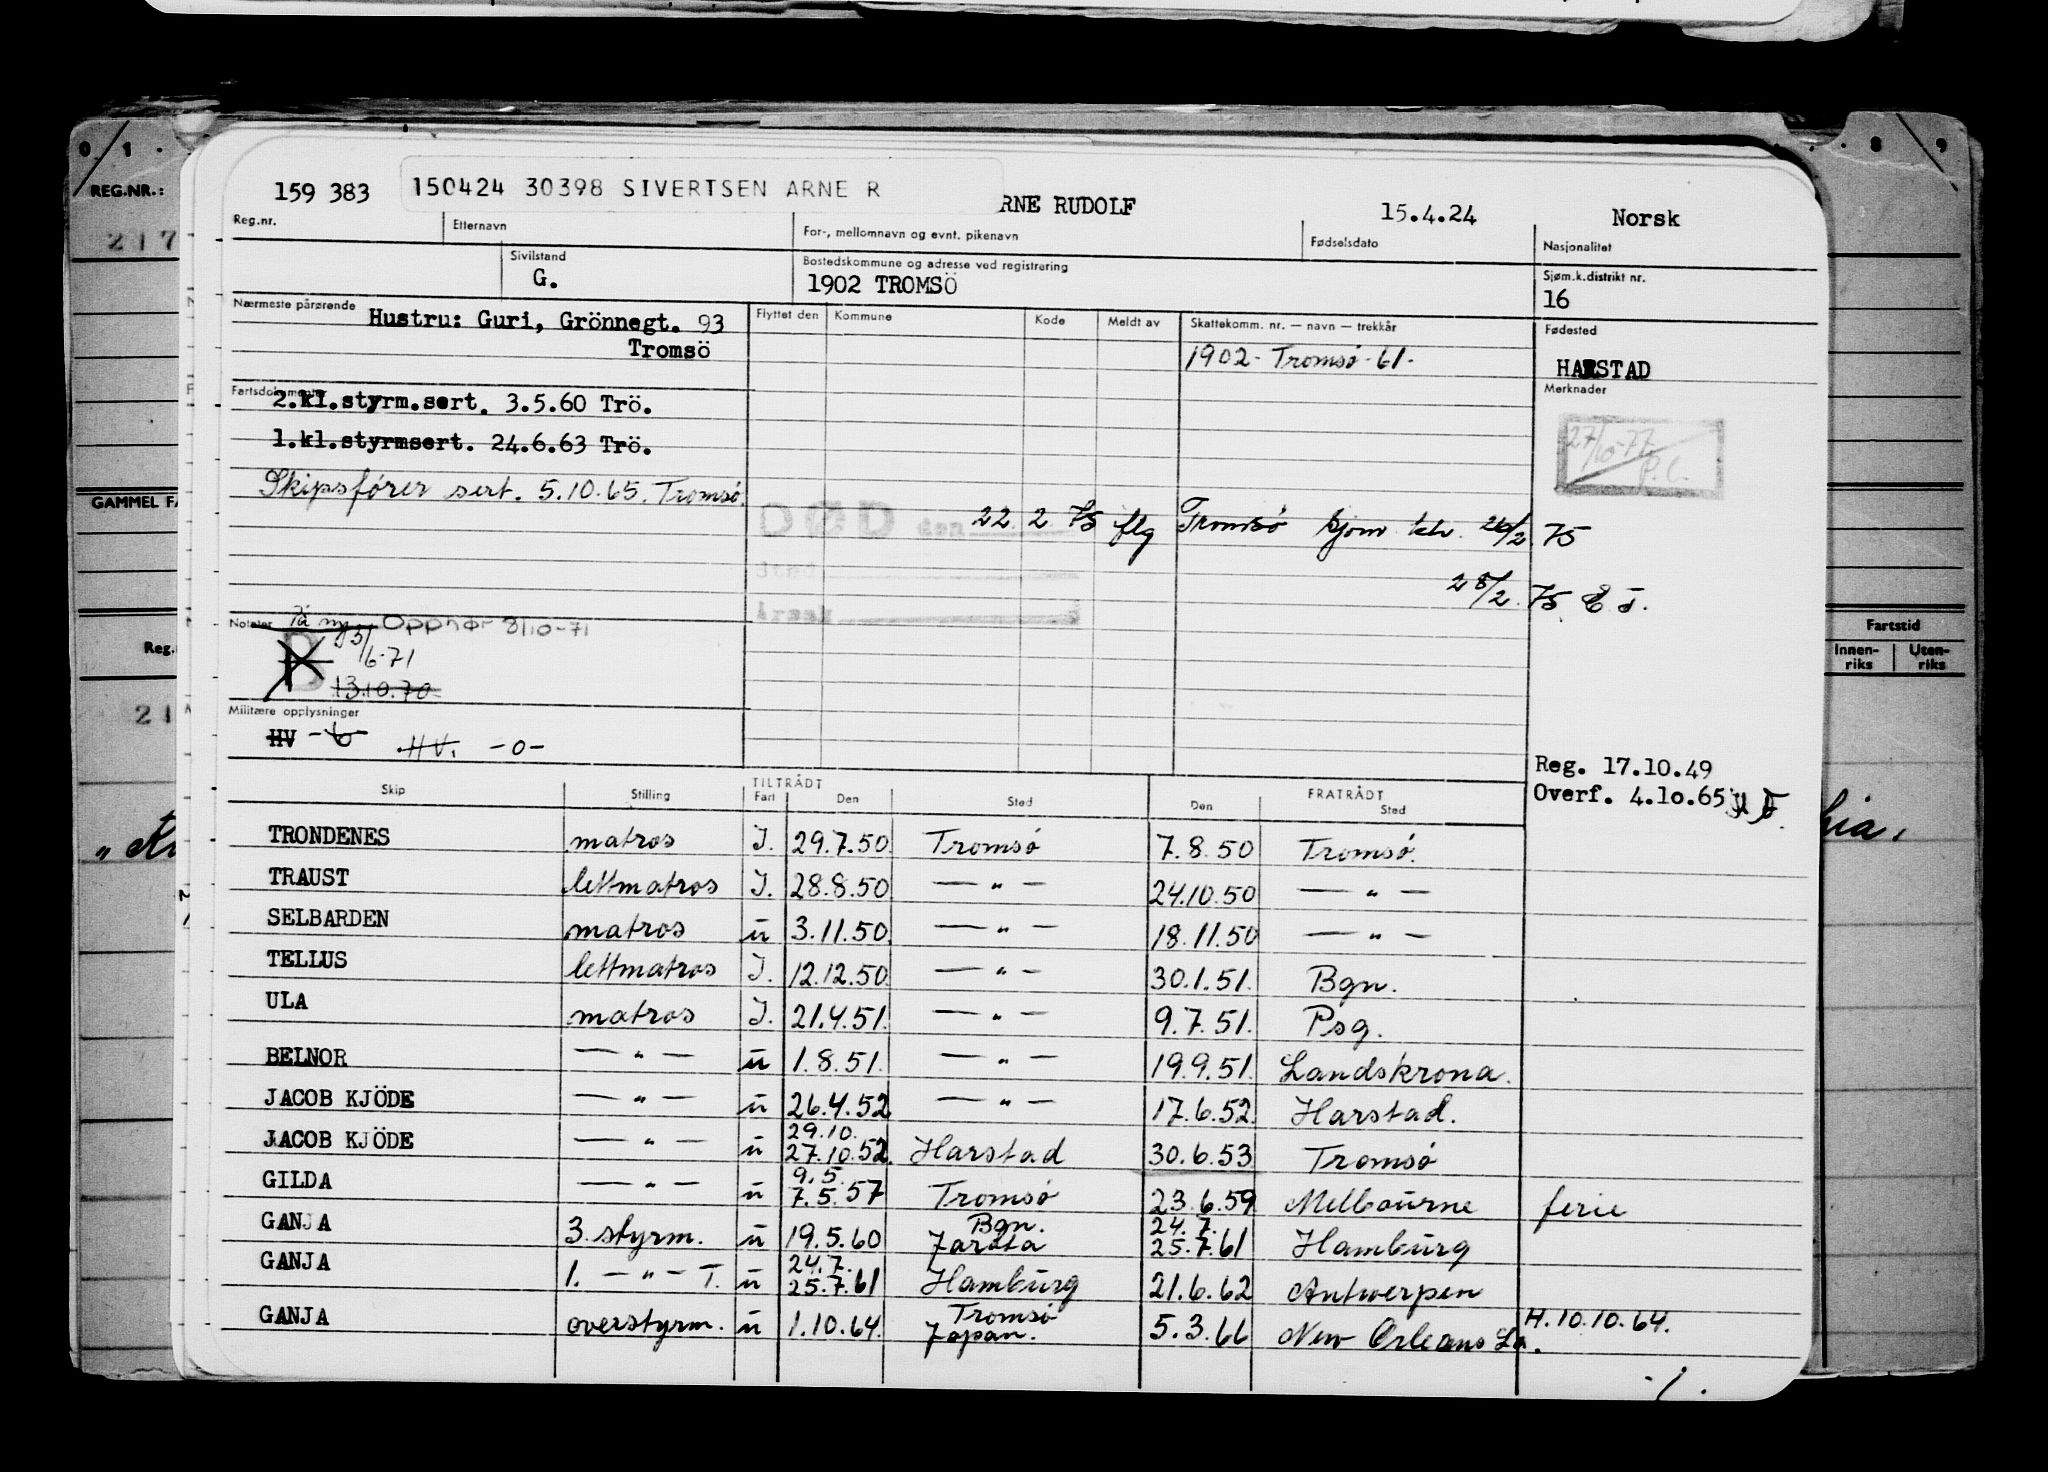 0 1 . . . 8 9
REG.NR.:
217
GAMMEL FA
Reg.
21
Fartstid
Innen-riks Uten-riks
159 383 150424 30398 SIVERTSEN ARNE R RNE RUDOLF 15.4.24 Norsk
Reg.nr. Etternavn For-, mellomnavn og evnt. pikenavn Fødselsdato Nasjonalitet
Sivilstand Bostedskommune og adresse ved registrering Sjøm.k.distrikt nr.
G. 1902 TROMSÖ 16
Nærmeste pårørende Hustru: Guri, Grönnegt. 93 Flyttet den Kommune Kode Meldt av Skattekomm. nr. — navn — trekkår Fødested
Tromsö 1902 - Tromsø - 61. HARSTAD
Fartsdokumenter Merknader
2.kl.styrm.sert. 3.5.60 Trö.
1.kl.styrmsert. 24.6.63 Trö. 27/10-77 P.C.
Skipsfører sert. 5.10.65. Tromsø.
DØD den 22 2 75 flg Tromsø sjøm. ktr. 26/2 75
Sted
Årsak 28/2. 75 E J.
Notater På ny Opphør 8/10-71
B 3/6-71
13.10.70
Militære opplysninger
HV -6- HV. -0-
Reg. 17.10.49
Overf. 4.10.65
Skip Stilling TILTRÅDT Fart Den Sted FRATRÅDT Den Sted
TRONDENES matros I. 29.7.50. Tromsø 7.8.50 Tromsø.
TRAUST lettmatros I. 28.8.50 — " — 24.10.50 — " —
SELBARDEN matros u 3.11.50. — " — 18.11.50 — " —
TELLUS lettmatros I. 12.12.50. — " — 30.1.51. Bgn.
ULA matros I. 21.4.51. — " — 9.7.51. Psg.
BELNOR — " — u 1.8.51. — " — 19.9.51. Landskrona.
JACOB KJÖDE — " — u 26.4.52 — " — 17.6.52. Harstad.
29.10.
JACOB KJÖDE — " — u 27.10.52. Harstad 30.6.53 Tromsø
9.5.
GILDA — " — u 7.5.57 Tromsø 23.6.59 Melbourne ferie
Bgn. 24.7.
GANJA 3. styrm. u 19.5.60 Jarita 25.7.61 Hamburg
24.7.
GANJA 1. — " — T. u 25.7.61 Hamburg 21.6.62 Antwerpen
Tromsø H.10.10.64.
GANJA overstyrm. u 1.10.64. Japan. 5.3.66 New Orleans La.
-/.